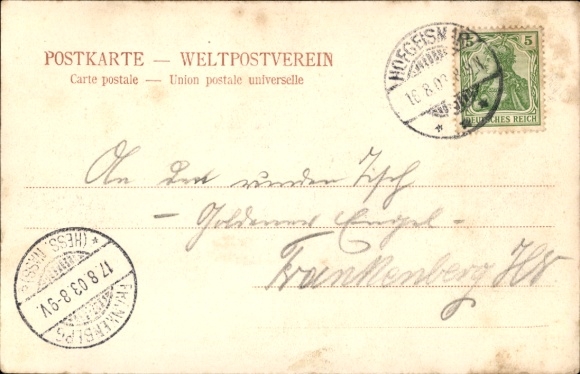 POSTKARTE — WELTPOSTVEREIN
Carte postale — Union postale universelle
HOFGEISMAR
16.8.03
5 5
DEUTSCHES REICH
An den runden Tisch
- Goldener Engel -
Frankenberg
FRANKENBERG
17.8.03 8-9V.
(HESS.